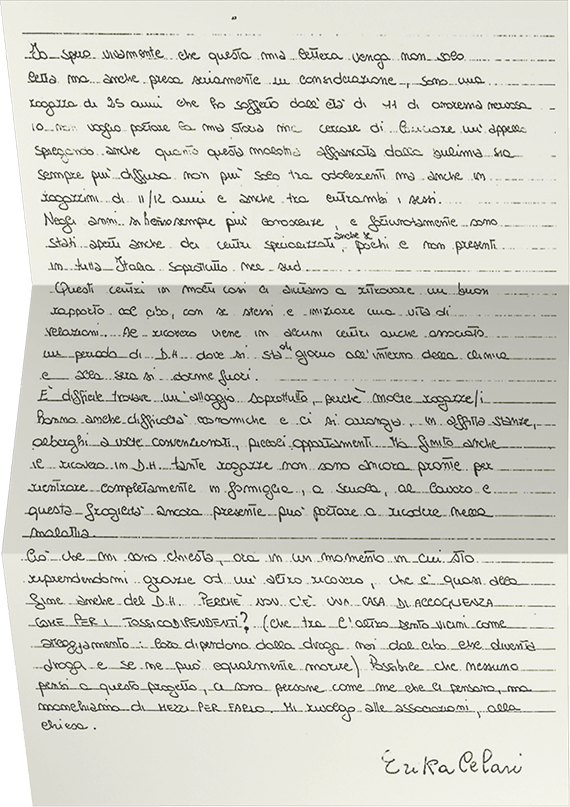 Io spero vivamente che questa mia lettera venga non solo
letta ma anche presa seriamente in considerazione, sono una
ragazza di 25 anni che ho sofferto dall'età di 11 di anoressia nervosa
io non voglio portare la mia storia ma cercare di lanciare un'appello
spiegando anche quanto questa malattia affiancata dalla bulimia sia
sempre piu' diffusa non piu' solo tra adolescenti ma anche in
ragazzini di 11/12 anni e anche tra entrambi i sessi.
Negli anni si hanno sempre piu' conoscenze, e fortunatamente sono
stati aperti anche dei centri specializzati, anche se pochi e non presenti
in tutta Italia soprattutto nel sud.
Questi centri in molti casi ci aiutano a ritrovare un buon
rapporto col cibo, con se stessi e iniziare una vita di
relazioni. Al ricovero viene in alcuni centri anche associato
un periodo di D.H. dove si sta di giorno all'interno della clinica
e alla sera si dorme fuori.
E' difficile trovare un'alloggio soprattutto, perchè molte ragazze/i
hanno anche difficoltà economiche e ci si arrangia, in affitta stanze,
alberghi a volte convenzionati, piccoli appartamenti. Ma finito anche
il ricovero in D.H. tante ragazze non sono ancora pronte per
rientrare completamente in famiglia, a scuola, al lavoro e
questa fragilità ancora presente può portare a ricadere nella
malattia.
Ciò che mi sono chiesta, ora in un momento in cui sto
riprendendomi grazie ad un'altro ricovero, che è quasi alla
fine anche del D.H. PERCHÈ NON C'È UNA CASA DI ACCOGLIENZA
COME PER I TOSSICODIPENDENTI? (che tra l'altro sento vicini come
atteggiamento: loro dipendono dalla droga noi dal cibo che diventa
droga e se ne può equalmente morire) Possibile che nessuno
pensi a questo progetto, ci sono persone come me che ci pensano, ma
manchiamo di MEZZI PER FARLO. Mi rivolgo alle associazioni, alla
chiesa.
Erika Celani